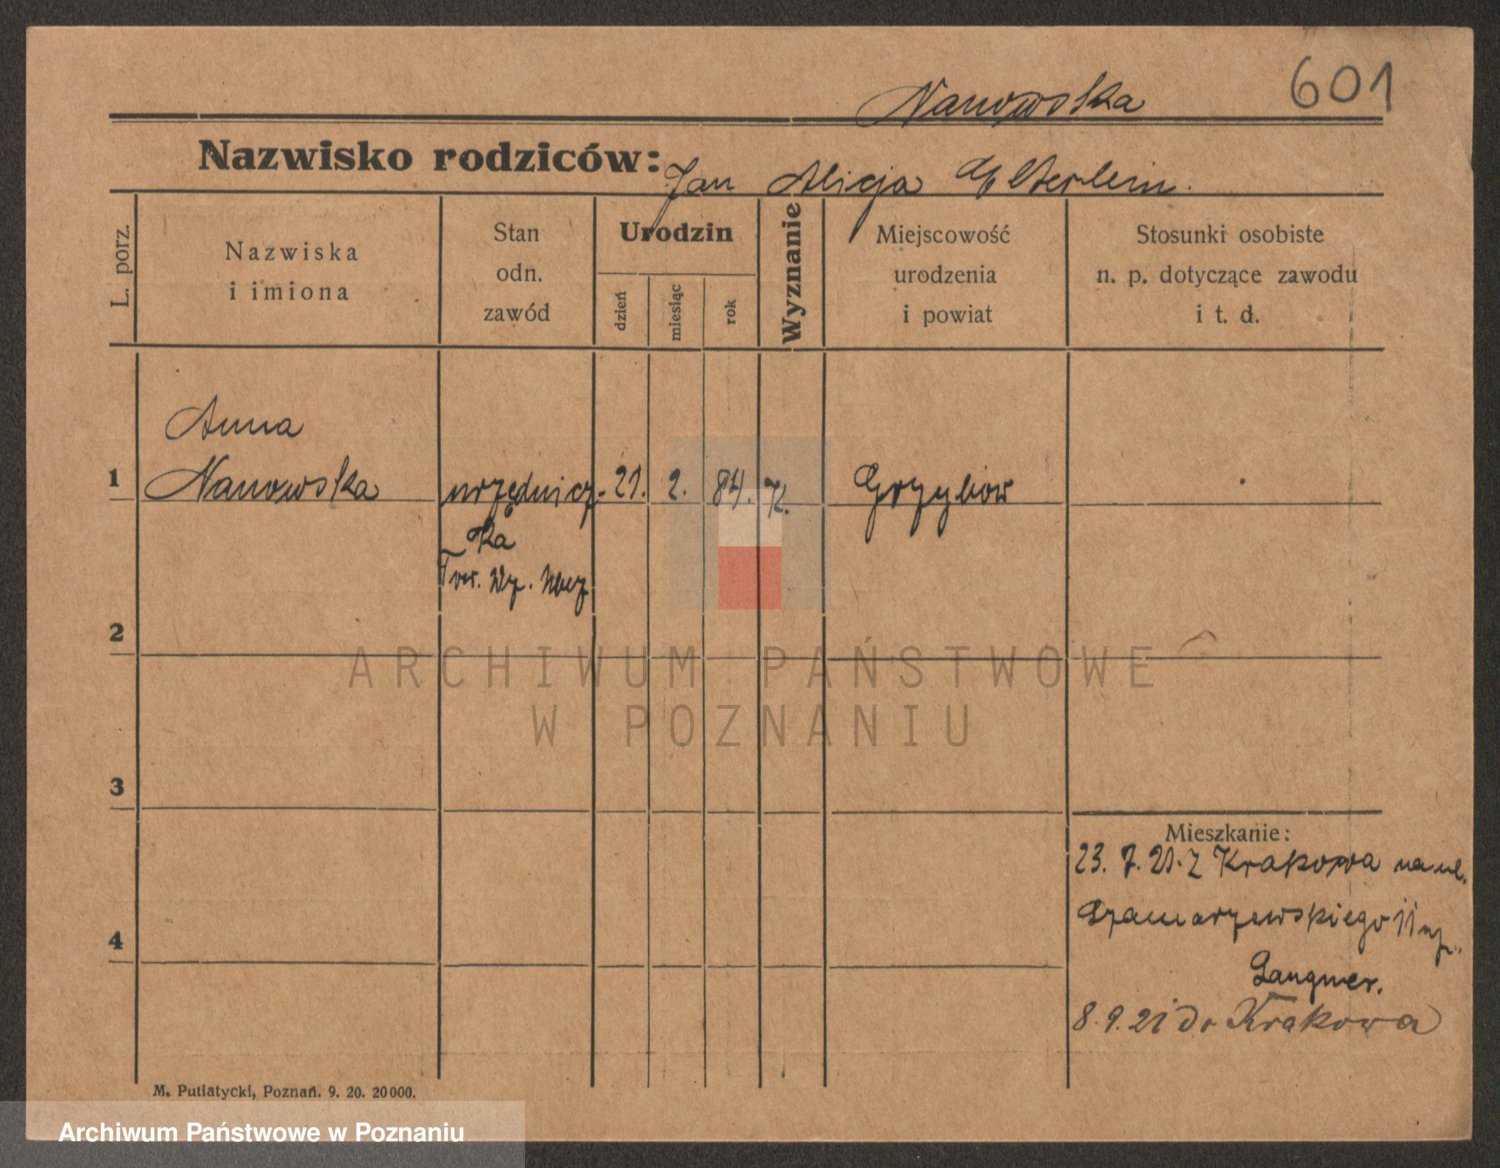 601
Nanowska
Nazwisko rodziców: Jan Alicja
L. porz.
Nazwiska
i imiona
Stan
odn.
zawód
Urodzin
dzień
miesiąc
rok
Wyznanie
Miejscowość
urodzenia
i powiat
Stosunki osobiste
n. p. dotyczące zawodu
i t. d.
Anna
1 Nanowska urzędnicz- 21. 2. 84. K. Grzybów
ka
2
ARCHIWUM PAŃSTWOWE
W POZNANIU
3
Mieszkanie:
23. 7. 21. z Krakowa na ul.
Szamarzewskiego 11
4
Langner.
8. 9. 21 do Krakowa
M. Putiatycki, Poznań. 9. 20. 20000.
Archiwum Państwowe w Poznaniu